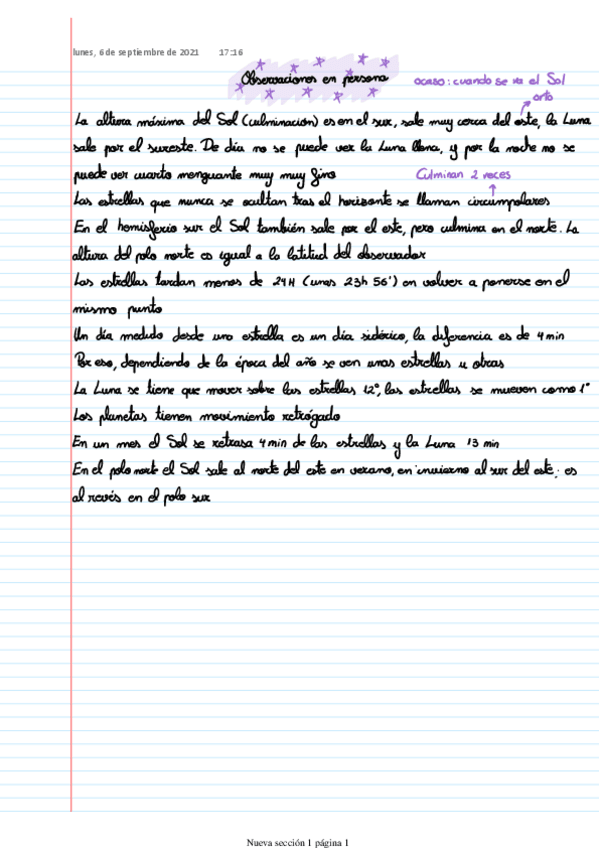 lunes, 6 de septiembre de 2021 17:16
Observaciones en persona
ocaso: cuando se va el Sol
orto
La altura máxima del Sol (culminación) es en el sur, sale muy cerca del este, la Luna
sale por el sureste. De día no se puede ver la Luna llena, y por la noche no se
puede ver cuarto menguante muy muy fino
Culminan 2 veces
Las estrellas que nunca se ocultan tras el horizonte se llaman circumpolares
En el hemisferio sur el Sol también sale por el este, pero culmina en el norte. La
altura del polo norte es igual a la latitud del observador
Las estrellas tardan menos de 24H (unas 23h 56') en volver a ponerse en el
mismo punto
Un día medido desde una estrella es un día sidérico, la diferencia es de 4 min
Por eso, dependiendo de la época del año se ven unas estrellas u otras
La Luna se tiene que mover sobre las estrellas 12°, las estrellas se mueven como 1°
Los planetas tienen movimiento retrógado
En un mes el Sol se retrasa 4 min de las estrellas y la Luna 13 min
En el polo norte el Sol sale al norte del este en verano, en invierno al sur del este; es
al revés en el polo sur
Nueva sección 1 página 1